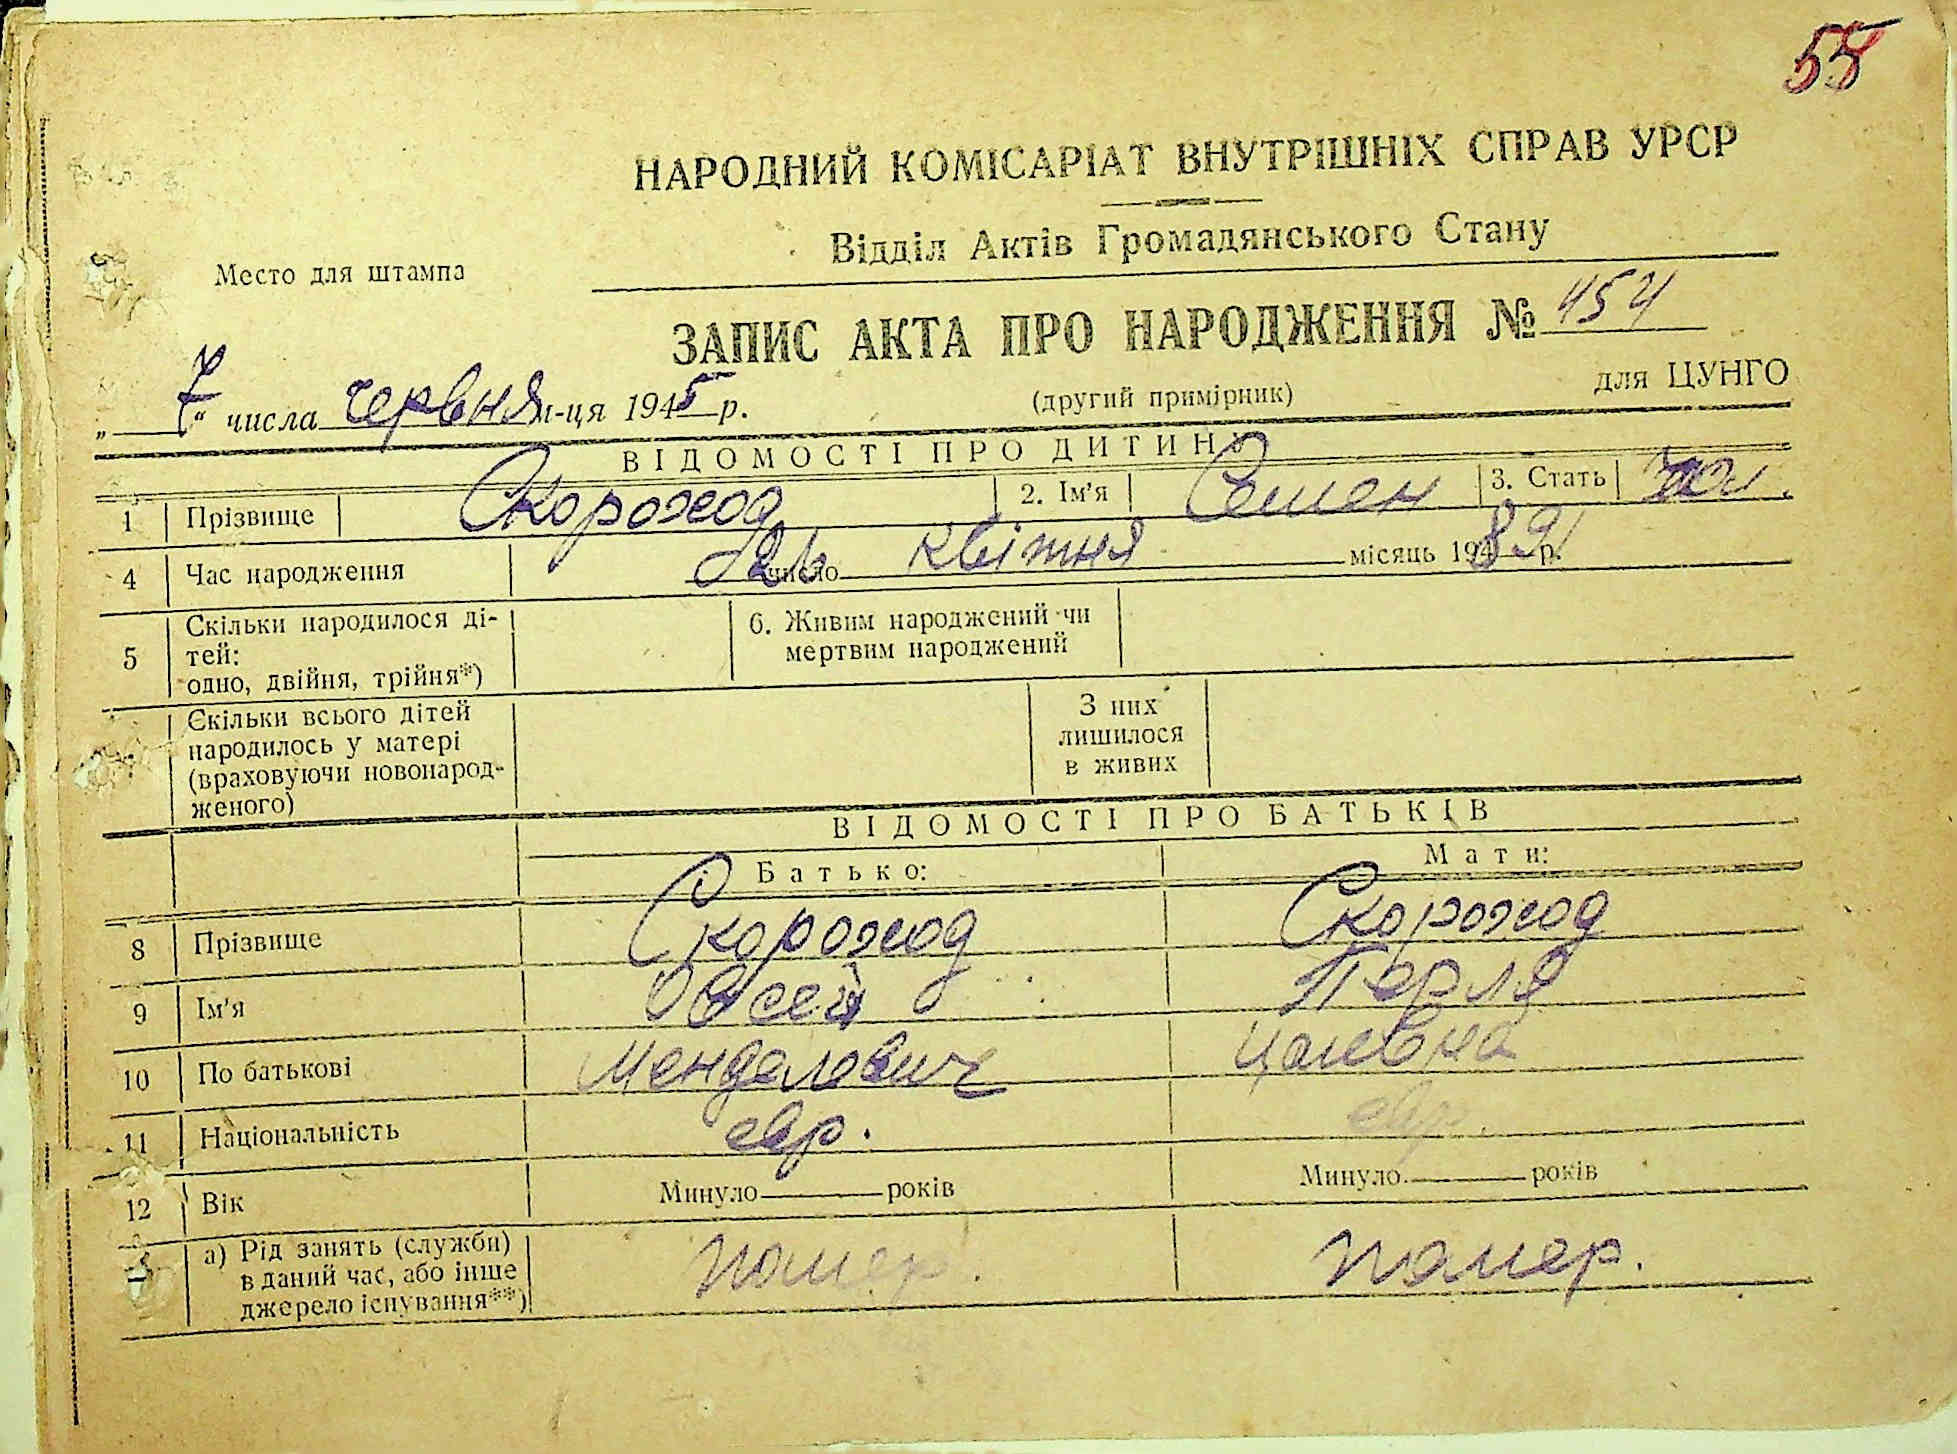 55
НАРОДНИЙ КОМІСАРІАТ ВНУТРІШНІХ СПРАВ УРСР
Відділ Актів Громадянського Стану
Место для штампа
ЗАПИС АКТА ПРО НАРОДЖЕННЯ № 454
„ 7 “ числа червня м-ця 1945 р.
(другий примірник)
для ЦУНГО
ВІДОМОСТІ ПРО ДИТИНУ
1 Прізвище Скороход 2. Ім’я Семен 3. Стать чол.
4 Час народження 26 число квітня місяць 194 891 р.
5 Скільки народилося ді-
тей:
одно, двійня, трійня*)
6. Живим народжений чи
мертвим народжений
Скільки всього дітей
народилось у матері
(враховуючи новонарод-
женого)
З них
лишилося
в живих
ВІДОМОСТІ ПРО БАТЬКІВ
Батько: Мати:
8 Прізвище Скороход Скороход
9 Ім’я Овсей Перля
10 По батькові Менделович Цалевна
11 Національність євр. євр.
12 Вік Минуло років Минуло років
а) Рід занять (служби)
в даний час, або інше
джерело існування**)
помер. помер.